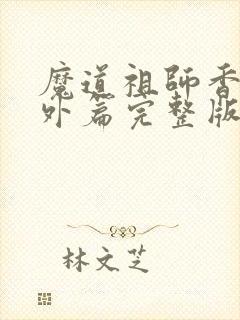 魔道祖師香
外篇完整版
林文芝